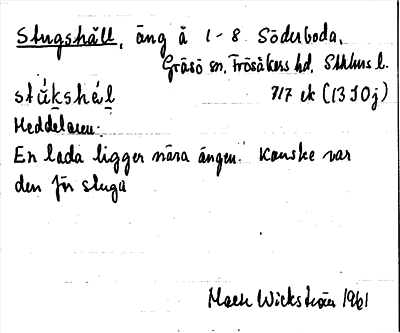 Stugshäll, äng å 1-8 Söderboda,
Gräsö sn, Frösåkers hd, Sthlms l.
stúkshèl 717 ek (13 I 0 j)
Meddelaren:
En lada ligger nära ängen. Kanske var
den för stuga
Wickström 1961